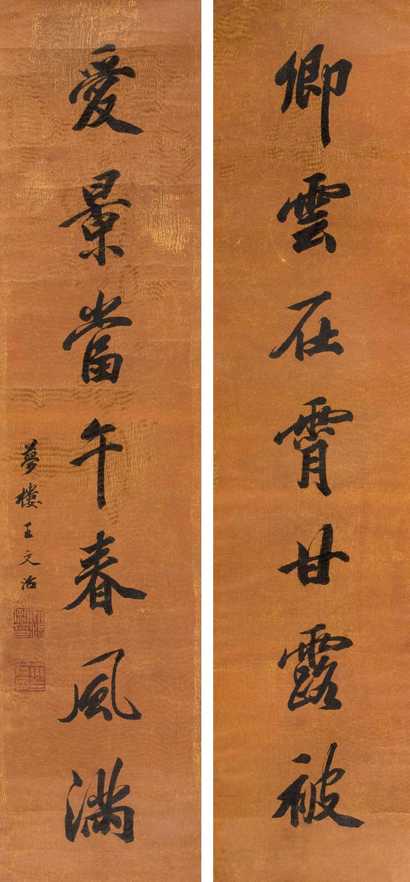 卿雲在霄甘露被
愛景當午春風滿
夢樓王文治